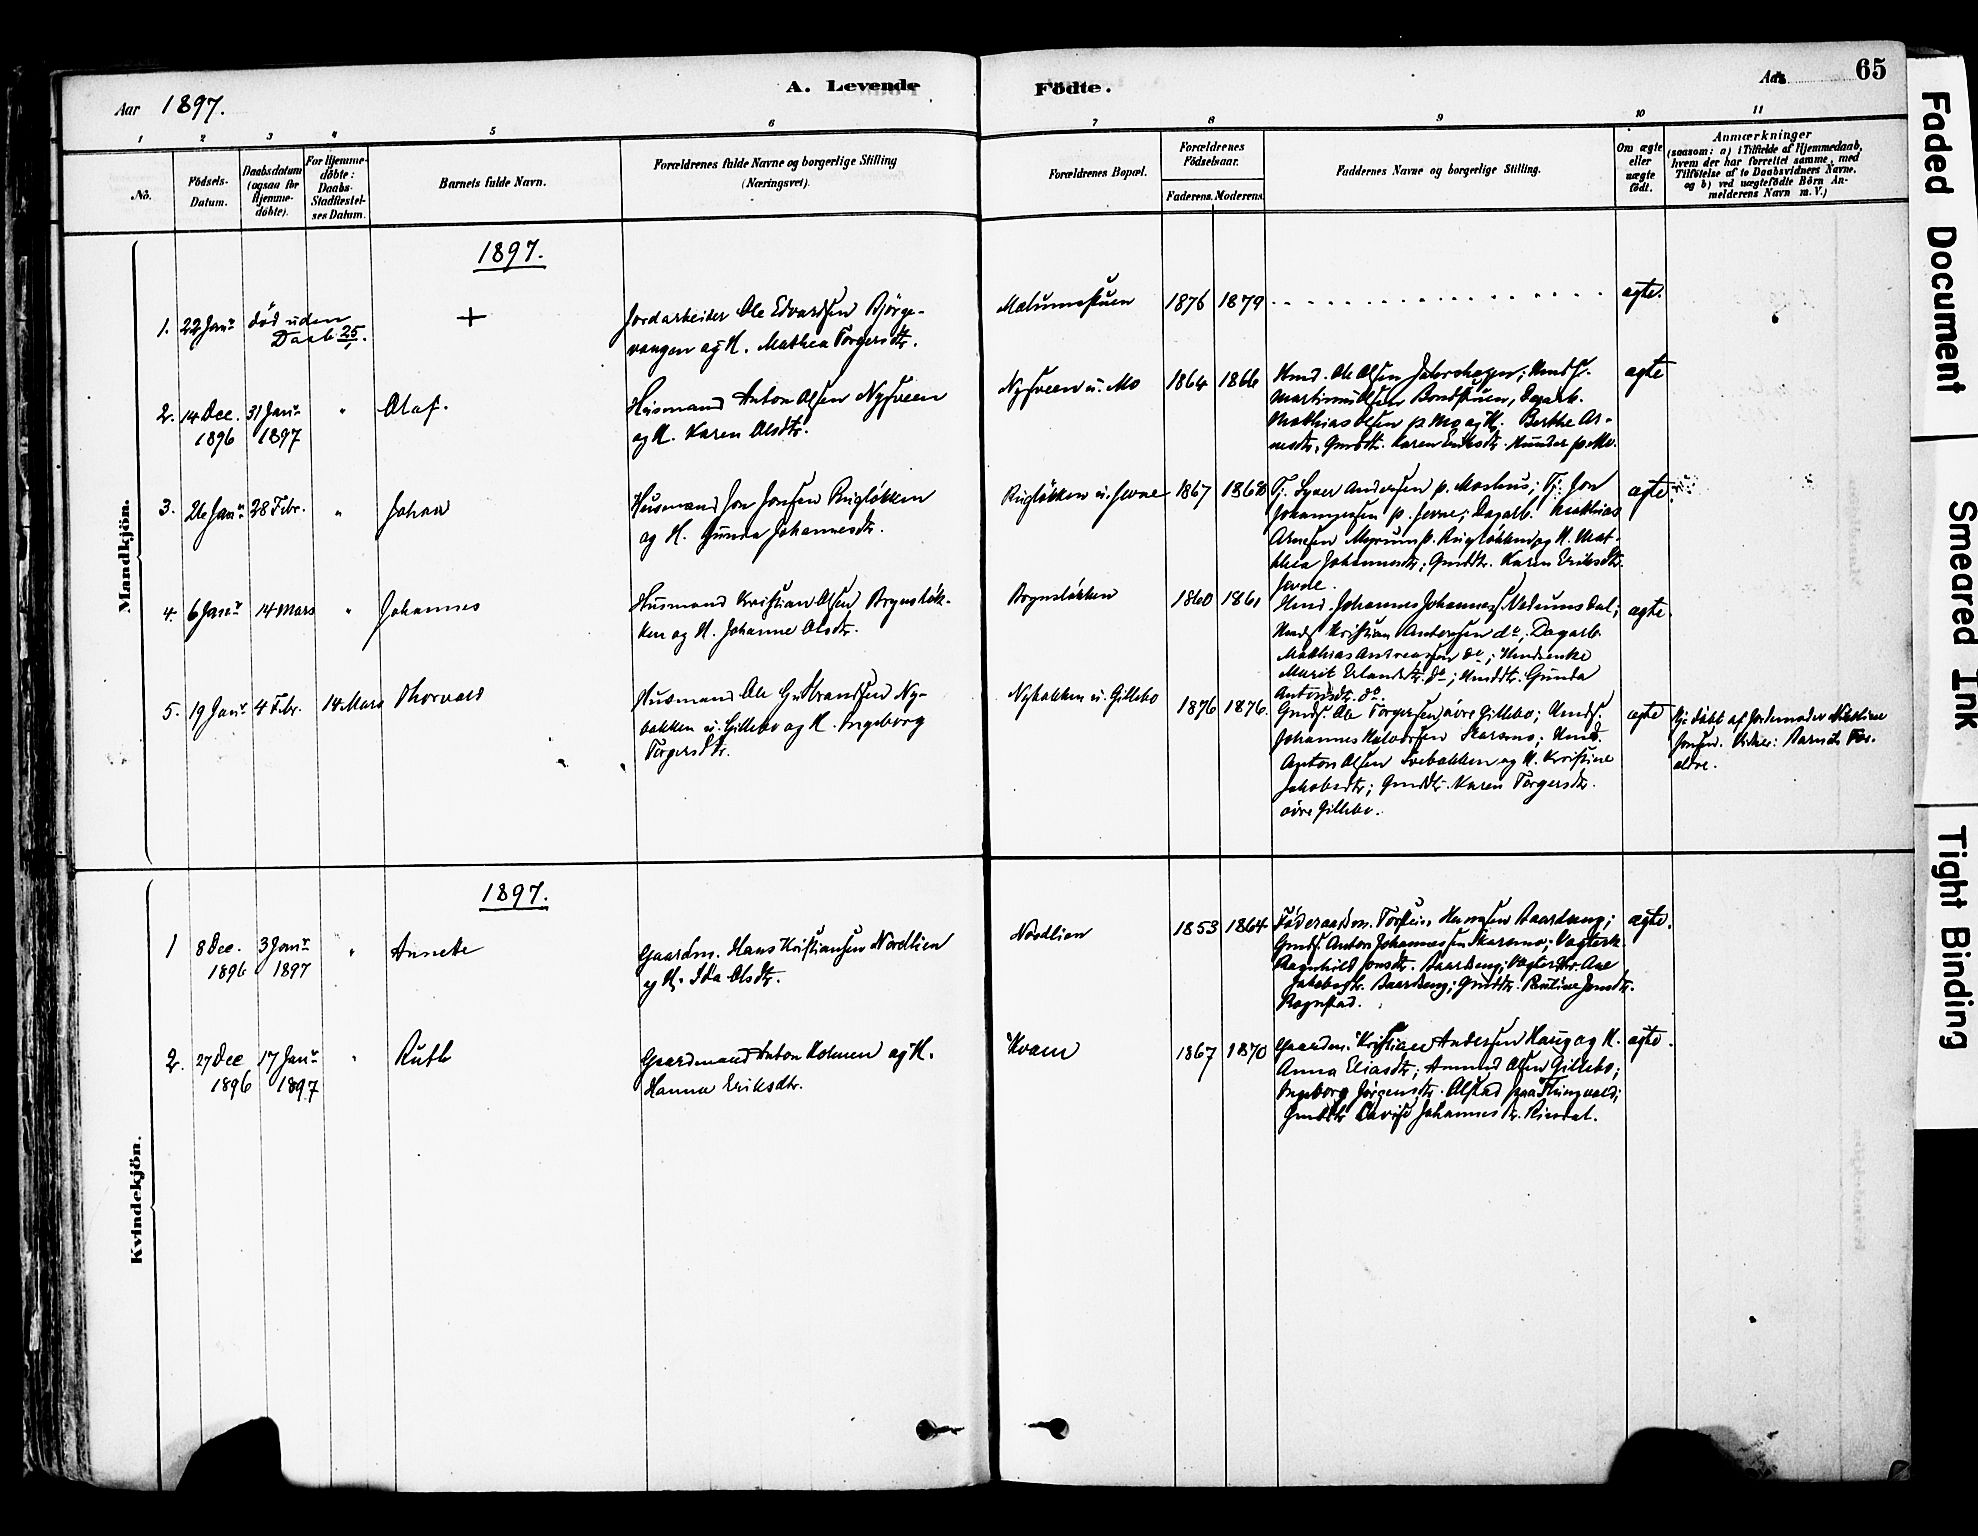 Aar 1897.
A. Levende
Födte.
Aar
65
1
2
3
4
5
6
7
8
9
10
11
No.
Födsels-
Datum.
Daabsdatum
(ogsaa for
Hjemme-
døbte).
For Hjemme-
døbte:
Daabs-
Stadfæstel-
ses Datum.
Barnets fulde Navn.
Forældrenes fulde Navne og borgerlige Stilling
(Næringsvei).
Forældrenes Bopæl.
Forældrenes
Födselsaar.
Faderens. Moderens.
Faddernes Navne og borgerlige Stilling.
Om ægte
eller
uægte
født.
Anmærkninger
(saasom: a) i Tilfælde af Hjemmedaab,
hvem der har forrettet samme, med
Tilføielse af to Daabsvidners Navne,
og b) ved uægtefødte Børn An-
melderens Navn m. V.)
Mandkjön.
1897.
1. 22 Janr død uden
Daab 25/1.
+
Jordarbeider Ole Edvardsen Bjørge-
vangen og H. Mathea Torgersdtr.
Mælumsstuen
1876 1879
ægte.
2. 14 Dec. 31 Janr " Olaf.
1896 1897
Husmand Anton Olsen Nysveen
og H. Karen Olsdtr.
Nysveen u. Mo
1864 1866
Hmd. Ole Olsen
Bondstuen, Dagarb.
Mathias Olsen p Mo og H. Berthe Ar-
nesdtr, Gmddtr. Karen Eriksdtr. Hunder p. Mo.
ægte
3. 26 Janr 28 Febr. " Johan
Husmand Jon Jonsen Rugløkken
og H. Gunda Johannesdtr.
Rugløkken u. Jevne
1867
Tj. Syver Andersen p. Moshus; Tj. Jon
Johannessen p. Jevne; Dagarb. Mathias
Arnesen Myrum p. Rugløkken og H. Mat-
thea Johannesdtr; Gmddtr. Karen Eriksdtr.
Jevne.
ægte
4. 6 Janr 14 Mars " Johannes
Husmand Kristian Olsen Brynsløk-
ken og H. Johanne Olsdtr.
Brynsløkken
1860 1861
Hmd. Johannes Johanness. Vedumsdal;
Hmds Kristian Antonsen do, Dagarb.
Mathias Andreassen do; Hmdsenke
Marit Erlandsdtr. do; Hmddtr. Gunda
Antonsdtr. do.
ægte.
5. 19 Janr 4 Febr. 14 Mars Thorvald
Husmand Ole Gulbrandsen Ny-
bakken u. Gillebo og H. Ingeborg
Torgersdtr.
Nybakken u. Gillebo
1876 1876.
Gmds. Ole Torgersen øvre Gillebo; Hmds.
Johannes Halvorsen Skarsmo; Hmd.
Anton Olsen Svebakken og H. Kristine
Jakobsdtr; Gmddtr. Karen Torgersdtr.
øvre Gillebo.
ægte
Hj. døbt af Jordemoder Nikoline
Jonsen. Vidner: Barnets For-
ældre.
Kvindekjön.
1897.
1 8 Dec. 3 Janr " Annete
1896 1897
Gaardm. Hans Kristiansen Nordlien
og H. Ida Olsdtr.
Nordlien
1853 1864
Føderaadsm. Torstein Hansen Baardseng;
Gmds. Anton Johannessen Skarsmo; Vægterk.
Ragnhild Jonsdtr. Baardseng; Vægterdtr. Ane
Jakobsdtr. Baardseng; Gmddtr. Pauline Jonsdtr.
Rognstad.
ægte.
2. 27 Dec 17 Janr " Ruth
1896 1897
Gaardmand Anton Holmen og H.
Hanna Eriksdtr.
Kvam
1867 1870
Gaardm. Kristian Andersen Haug og H.
Anna Eliasdtr; Amund Olsen Gillebo;
Ingeborg Jørgensdtr. Olstad paa Thingvold;
Gmddtr Lovise Johannesdtr. Riisdal.
ægte.
Faded Document
Smeared Ink
Tight Binding